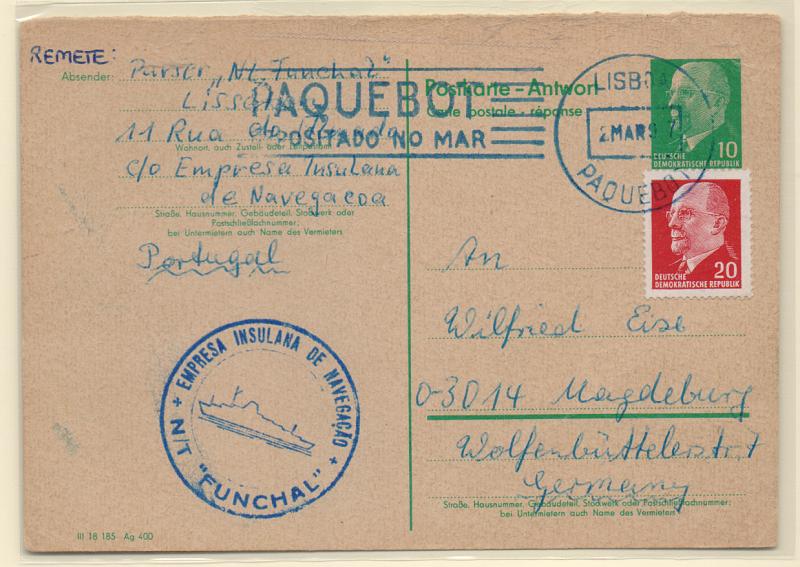 REMETE:
Absender: Purser „N.T. Funchal"
Lissabon
11 Rua
Wohnort, auch Zustell- oder Leitpostamt
c/o Empresa Insulana
de Navegacoa
Straße, Hausnummer, Gebäudeteil, Stockwerk oder
Postschließfachnummer;
bei Untermietern auch Name des Vermieters
Portugal
PAQUEBOT
POSITADO NO MAR
Postkarte - Antwort
Carte postale - réponse
LISBOA
2 MAR 9 7
PAQUEBOT
10
DEUTSCHE
DEMOKRATISCHE REPUBLIK
20
DEUTSCHE
DEMOKRATISCHE REPUBLIK
An
Wilfried Eise
0-3014 Magdeburg
Wolfenbüttelerstr. 7
Germany
Straße, Hausnummer, Gebäudeteil, Stockwerk oder Postschließfachnummer;
bei Untermietern auch Name des Vermieters
EMPRESA INSULANA DE NAVEGAÇÃO
N/T "FUNCHAL"
III 18 185 Ag 400